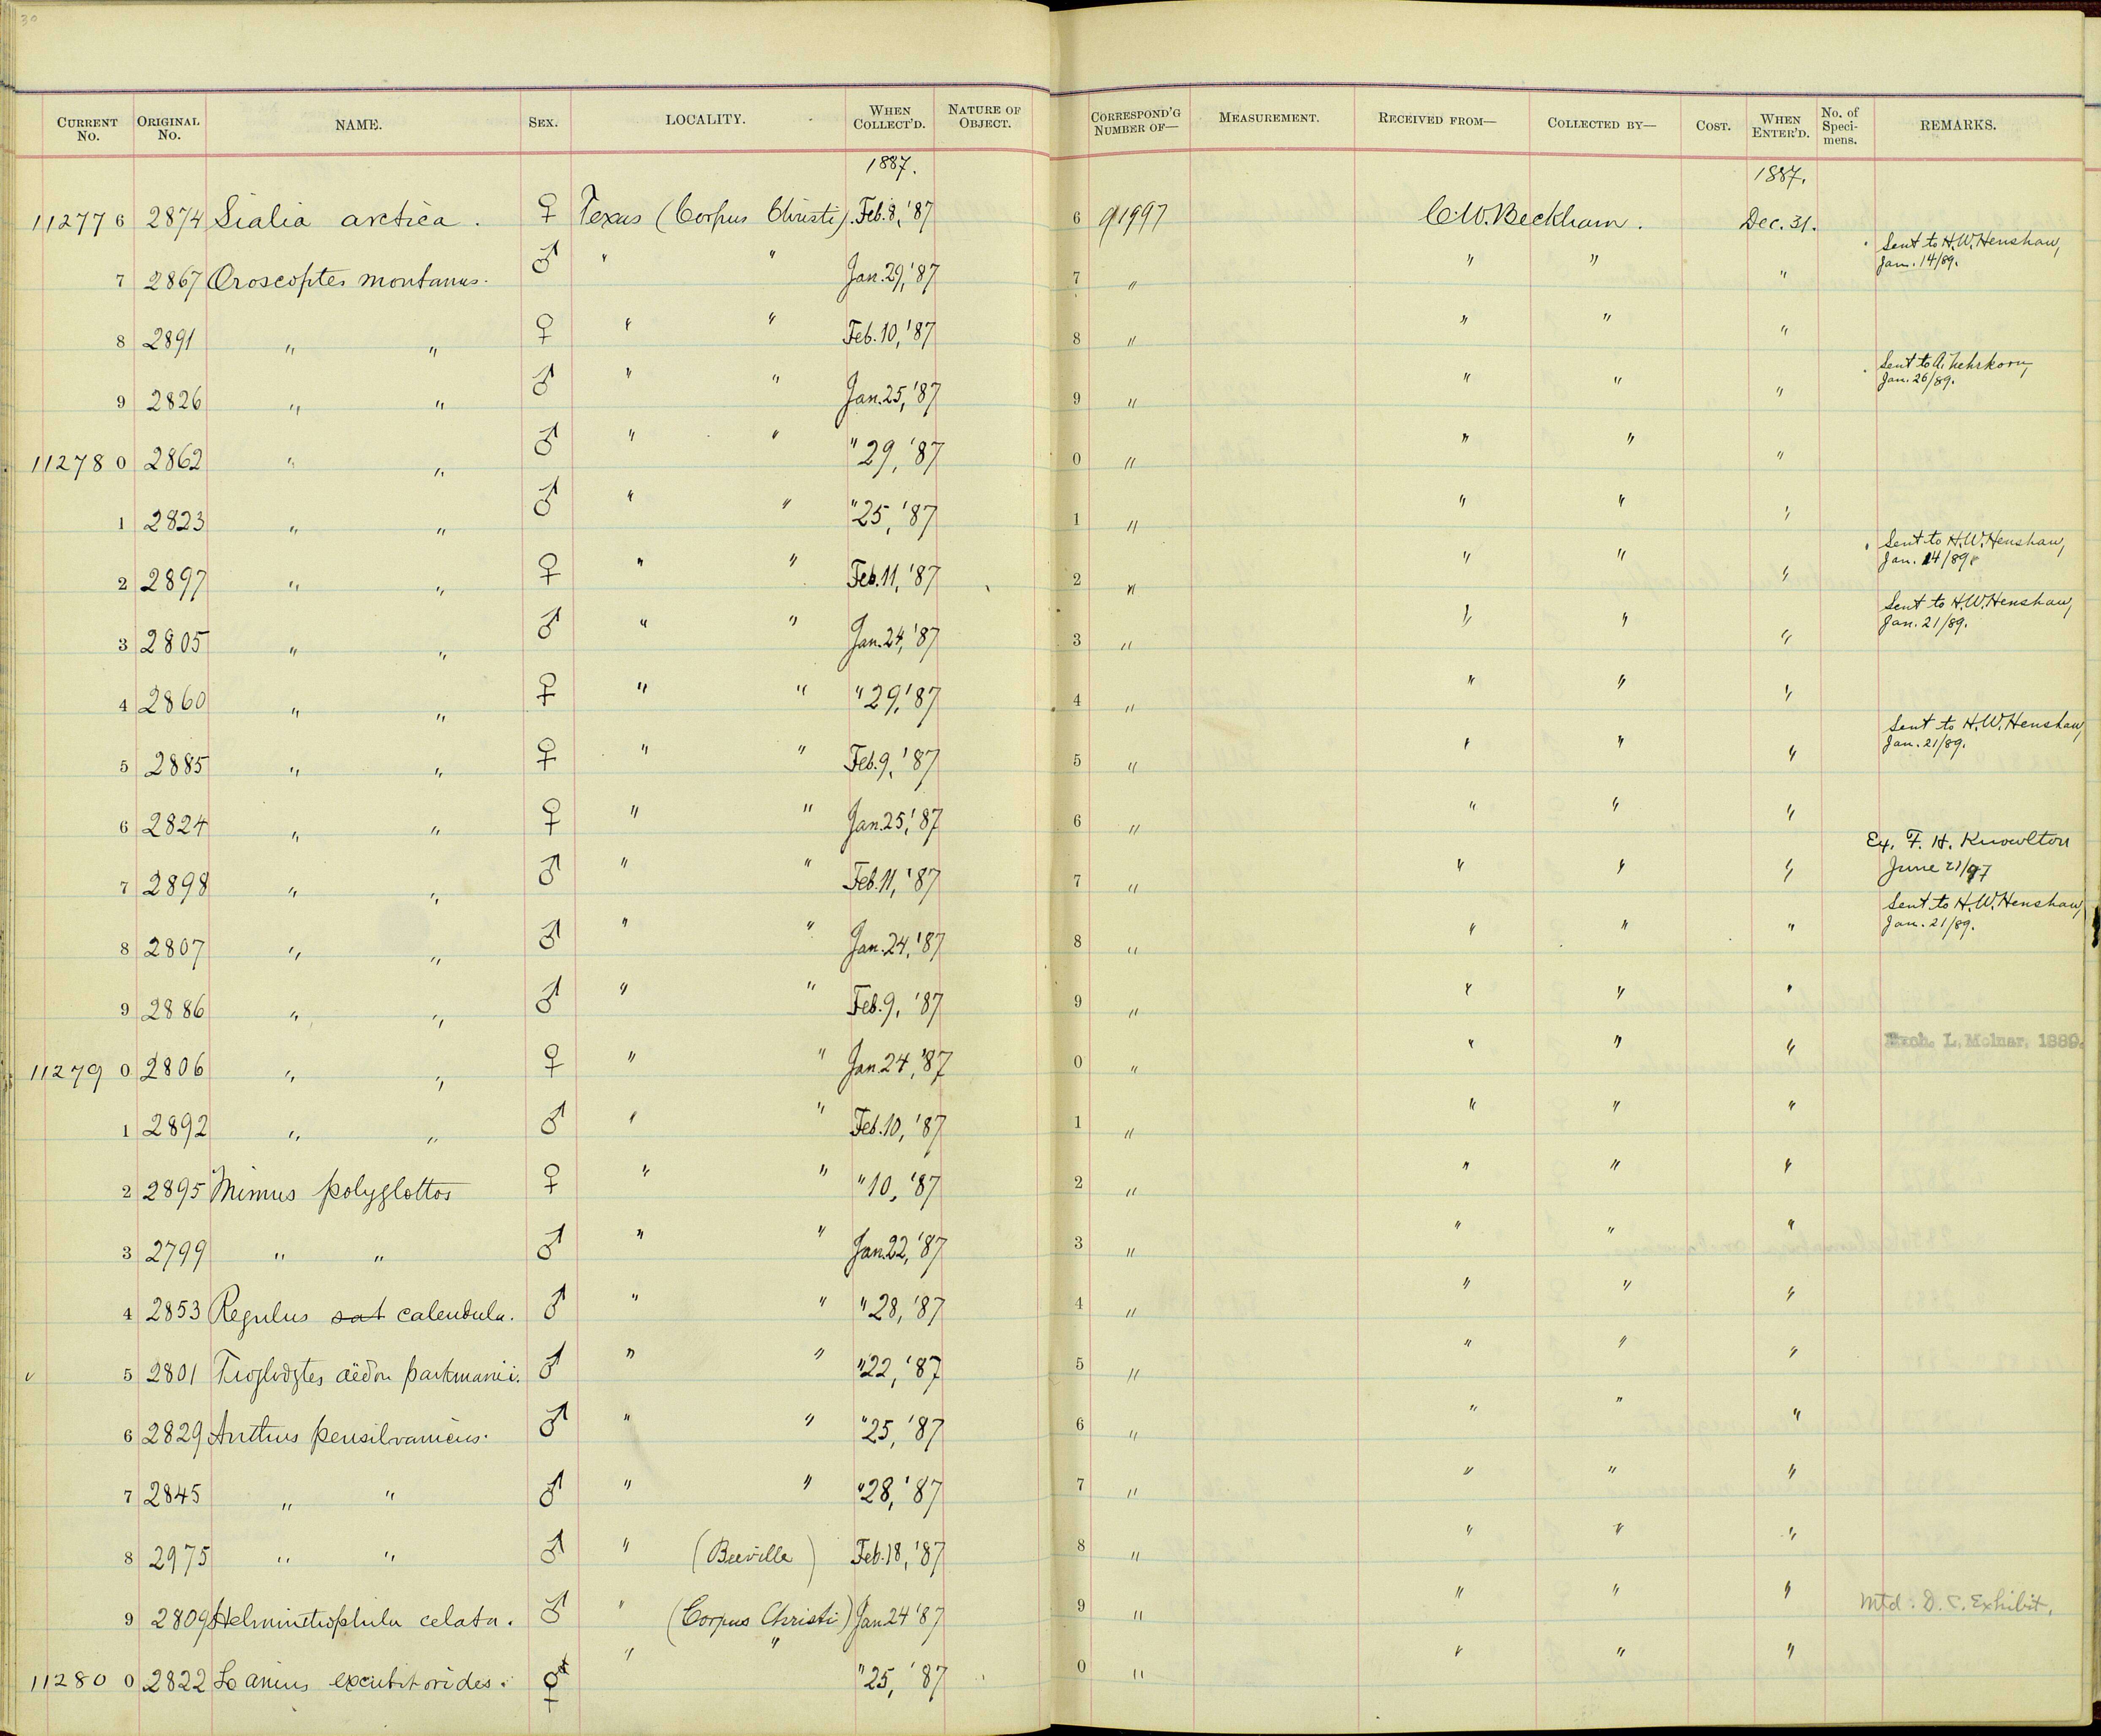 30
CURRENT No. ORIGINAL No. NAME. SEX. LOCALITY. WHEN COLLECT'D. NATURE OF OBJECT. CORRESPOND'G NUMBER OF— MEASUREMENT. RECEIVED FROM— COLLECTED BY— COST. WHEN ENTER'D. No. of Specimens. REMARKS.
1887. 1887.
11277 6 2874 Sialia arctica. ♀ Texas (Corpus Christi). Feb. 8, '87 6 1997 C.W. Beckham. Dec. 31.
7 2867 Oroscoptes montanus. ♂ " " Jan. 29, '87 7 " " " " Sent to H.W. Henshaw, Jan. 14/89.
8 2891 " " ♀ " " Feb. 10, '87 8 " " " "
9 2826 " " ♂ " " Jan. 25, '87 9 " " " " Sent to A. Jan. 26/89.
11278 0 2862 " " ♂ " " " 29, '87 0 " " " "
1 2823 " " ♂ " " " 25, '87 1 " " " "
2 2897 " " ♀ " " Feb. 11, '87 2 " " " " Sent to H.W. Henshaw, Jan. 14/89.
3 2805 " " ♂ " " Jan. 24, '87 3 " " " " Sent to H.W. Henshaw, Jan. 21/89.
4 2860 " " ♀ " " " 29, '87 4 " " " "
5 2885 " " ♀ " " Feb. 9, '87 5 " " " " Sent to H.W. Henshaw, Jan. 21/89.
6 2824 " " ♀ " " Jan. 25, '87 6 " " " "
7 2898 " " ♂ " " Feb. 11, '87 7 " " " " Ex. F. H. Knowlton June 21/97
8 2807 " " ♂ " " Jan. 24, '87 8 " " " " Sent to H.W. Henshaw, Jan. 21/89.
9 2886 " " ♂ " " Feb. 9, '87 9 " " " "
11279 0 2806 " " ♀ " " Jan. 24, '87 0 " " " " Exch. L. Molnar, 1889.
1 2892 " " ♂ " " Feb. 10, '87 1 " " " "
2 2895 Mimus polyglottos ♀ " " " 10, '87 2 " " " "
3 2799 " " ♂ " " Jan. 22, '87 3 " " " "
4 2853 Regulus sat calendula. ♂ " " " 28, '87 4 " " " "
5 2801 Troglodytes aëdon parkmanii. ♂ " " " 22, '87 5 " " " "
6 2829 Anthus pensilvanicus. ♂ " " " 25, '87 6 " " " "
7 2845 " " ♂ " " " 28, '87 7 " " " "
8 2975 " " ♂ " (Beeville) Feb. 18, '87 8 " " " "
9 2809 Helminthophila celata. ♂ " (Corpus Christi) Jan 24 '87 9 " " " " Mtd. D.C. Exhibit.
11280 0 2822 Lanius excubitorides. ♀ " " " 25, '87 0 " " " "